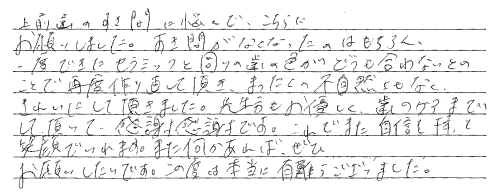 上前歯のすき間に悩んで、こちらに
お願いしました。すき間がなくなったのはもちろん、
一度できたセラミックと回りの歯の色がどうも合わないとの
ことで再度作り直して頂き、まったくの不自然さもなく、
きれいにして頂きました。先生方もお優しく、歯のケアまで
して頂いて、感謝感謝です。これでまた自信を持って
笑顔でいれます。また何かあれば、ぜひ
お願いしたいです。この度は本当に有難うございました。